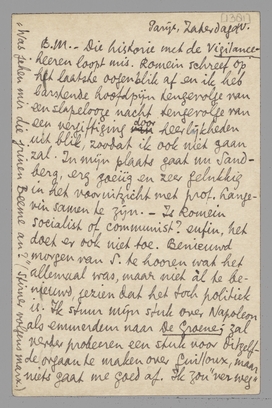 Parijs, Zaterdagav.
B.M. - Die historie met de Vigilance-
heeren loopt mis. Romein schreef op
het laatste oogenblik af en ik heb
barstende hoofdpijn tengevolge van
een slapelooze nacht tengevolge van
een vergiftiging door heerlijkheden
uit blik, zoodat ik ook niet gaan
zal. In mijn plaats gaat nu Sand-
berg, erg goeiïg en zeer gelukkig
in het vooruitzicht met prof. Lange-
vin samen te zijn. - Is Romein
socialist of communist? enfin, het
doet er ook niet toe. Benieuwd
morgen van S. te hooren wat het
allemaal was, maar niet àl te be-
nieuwd, gezien dat het toch politiek
is. Ik stuur mijn stuk over Napoleon
als emmerdeur naar De Groene; zal
verder probeeren een stuk voor
de organ te maken over Guilloux, maar
niets gaat me goed af. Ik zou ver weg
"Was gehen mir die grünen Beeme an?" Stirner volgens Marx.